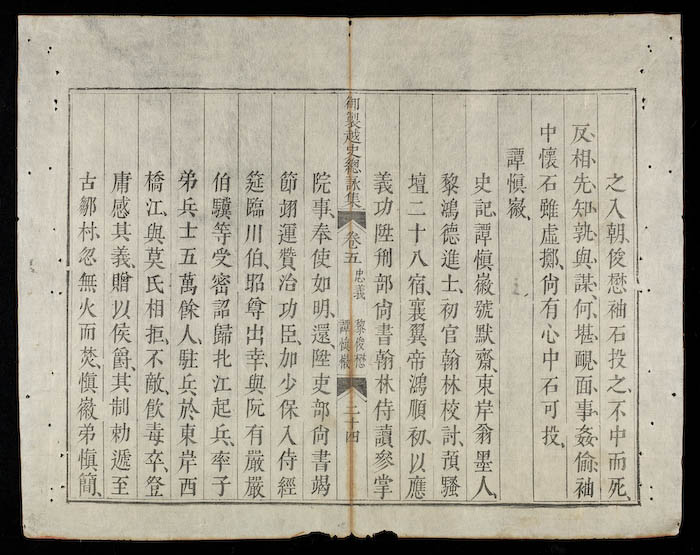 之入朝、俊懋袖石投之、不中而死、
反相先知孰與謀、何堪靦面事姦偷、袖
中懷石雖虛擲、尙有心中石可投、
譚慎徽、
史記、譚慎徽、號默齋、東岸翁墨人、
黎鴻德進士、初官翰林校討、預騷
壇二十八宿、襄翼帝鴻順初、以應
義功陞刑部尙書翰林侍讀參掌
御製越史總詠集
卷五
忠義
黎俊懋
譚慎徽
二十四
院事、奉使如明、還、陞吏部尙書、竭
節翊運贊治功臣、加少保入侍經
筵臨川伯、昭尊出幸、與阮有嚴嚴
伯驥等受密詔歸北江起兵、率子
弟兵士五萬餘人、駐兵於東岸西
橋江、與莫氏相拒、不敵、飲毒卒、登
庸感其義、贈以侯爵、其制勅遞至
古鄒村、忽無火而焚、慎徽弟慎簡、